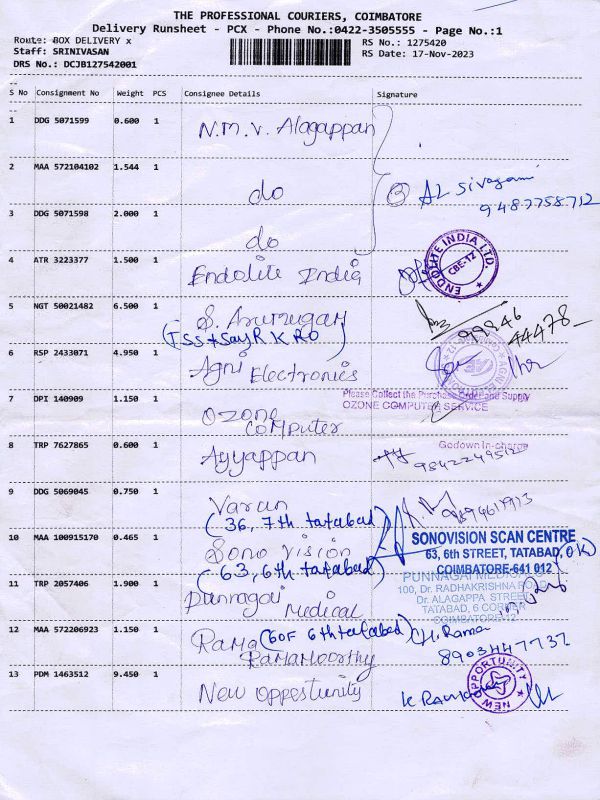 THE PROFESSIONAL COURIERS, COIMBATORE
Delivery Runsheet - PCX - Phone No.:0422-3505555 - Page No.:1
Route: BOX DELIVERY x
RS No.: 1275420
Staff: SRINIVASAN
RS Date: 17-Nov-2023
DRS No.: DCJB127542001
S No Consignment No Weight PCS Consignee Details Signature
1 DDG 5071599 0.600 1 N.M.V. Alagappan
2 MAA 572104102 1.544 1 do
AL Sivagami
9487758712
3 DDG 5071598 2.000 1 do
4 ATR 3223377 1.500 1 Endolite India
ENDOLITE INDIA LTD.
CBE-12
5 NGT 50021482 6.500 1 S. Arumugam
(TSS & Say R K R O)
99946
44478
6 RSP 2433071 4.950 1 Agni Electronics
7 DPI 140909 1.150 1 Ozone Computer
Please Collect the Purchase Order and Supply
OZONE COMPUTER SERVICE
8 TRP 7627865 0.600 1 Ayyappan
Godown In-charge
9 DDG 5069045 0.750 1 Varun
(36, 7th tatabad)
10 MAA 100915170 0.465 1 Sono Vision
(63, 6th tatabad)
SONOVISION SCAN CENTRE
63, 6th STREET, TATABAD, (OK)
COIMBATORE-641 012
11 TRP 2057406 1.900 1 Punnagai Medical
PUNNAGAI MEDICAL
100, Dr. RADHAKRISHNA ROAD
Dr. ALAGAPPA STREET
TATABAD, 6 CORNER
COIMBATORE-12
12 MAA 572206923 1.150 1 Rama (60F 6th tatabad)
Ramamoorthy
CH. Rama
8903447737
13 PDM 1463512 9.450 1 New Oppestunity
NEW OPPORTUNITY